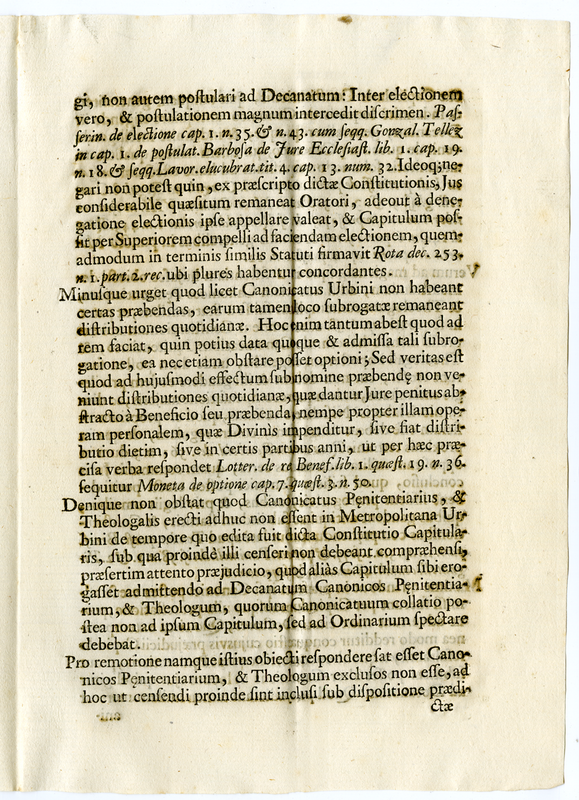 gi, non autem poſtulari ad Decanatum: Inter electionem
vero, & poſtulationem magnum intercedit diſcrimen. Paſ-
ſerin. de electione cap. 1. n. 35. & n. 43. cum ſeqq. Gonzal. Tellez
in cap. 1. de poſtulat. Barboſa de Jure Eccleſiaſt. lib. 1. cap. 19.
n. 18. & ſeqq. Lavor. elucubrat. tit. 4. cap. 13. num. 32. Ideoq; ne-
gari non poteſt quin, ex præſcripto dictæ Conſtitutionis, Jus
conſiderabile quæſitum remaneat Oratori, adeout à dene-
gatione electionis ipſe appellare valeat, & Capitulum poſ-
ſit per Superiorem compelli ad faciendam electionem, quem-
admodum in terminis ſimilis Statuti firmavit Rota dec. 253.
n. 1. part. 2. rec. ubi plures habentur concordantes.
Minuſque urget quod licet Canonicatus Urbini non habeant
certas præbendas, earum tamen loco ſubrogatæ remaneant
diſtributiones quotidianæ. Hoc enim tantum abeſt quod ad
rem faciat, quin potius data quoque & admiſſa tali ſubro-
gatione, ea nec etiam obſtare poſſet optioni; Sed veritas eſt
quod ad hujuſmodi effectum ſub nomine præbendę non ve-
niunt diſtributiones quotidianæ, quæ dantur Jure penitus ab-
ſtracto à Beneficio ſeu præbenda, nempe propter illam ope-
ram perſonalem, quæ Divinis impenditur, ſive fiat diſtri-
butio dietim, ſive in certis partibus anni, ut per hæc præ-
ciſa verba reſpondet Lotter. de re Benef. lib. 1. quæſt. 19. n. 36.
ſequitur Moneta de optione cap. 7. quæſt. 3. n. 50.
Denique non obſtat quod Canonicatus Pęnitentiarius, &
Theologalis erecti adhuc non eſſent in Metropolitana Ur-
bini de tempore quo edita fuit dicta Conſtitutio Capitula-
ris, ſub qua proindè illi cenſeri non debeant compræhenſi,
præſertim attento præjudicio, quod aliàs Capitulum ſibi ero-
gaſſet admittendo ad Decanatum Canonicos Pęnitentia-
rium, & Theologum, quorum Canonicatuum collatio po-
ſtea non ad ipſum Capitulum, ſed ad Ordinarium ſpectare
debebat.
Pro remotione namque iſtius obiecti reſpondere ſat eſſet Cano-
nicos Pęnitentiarium, & Theologum excluſos non eſſe, ad
hoc ut cenſendi proinde ſint incluſi ſub diſpoſitione prædi-
ctæ